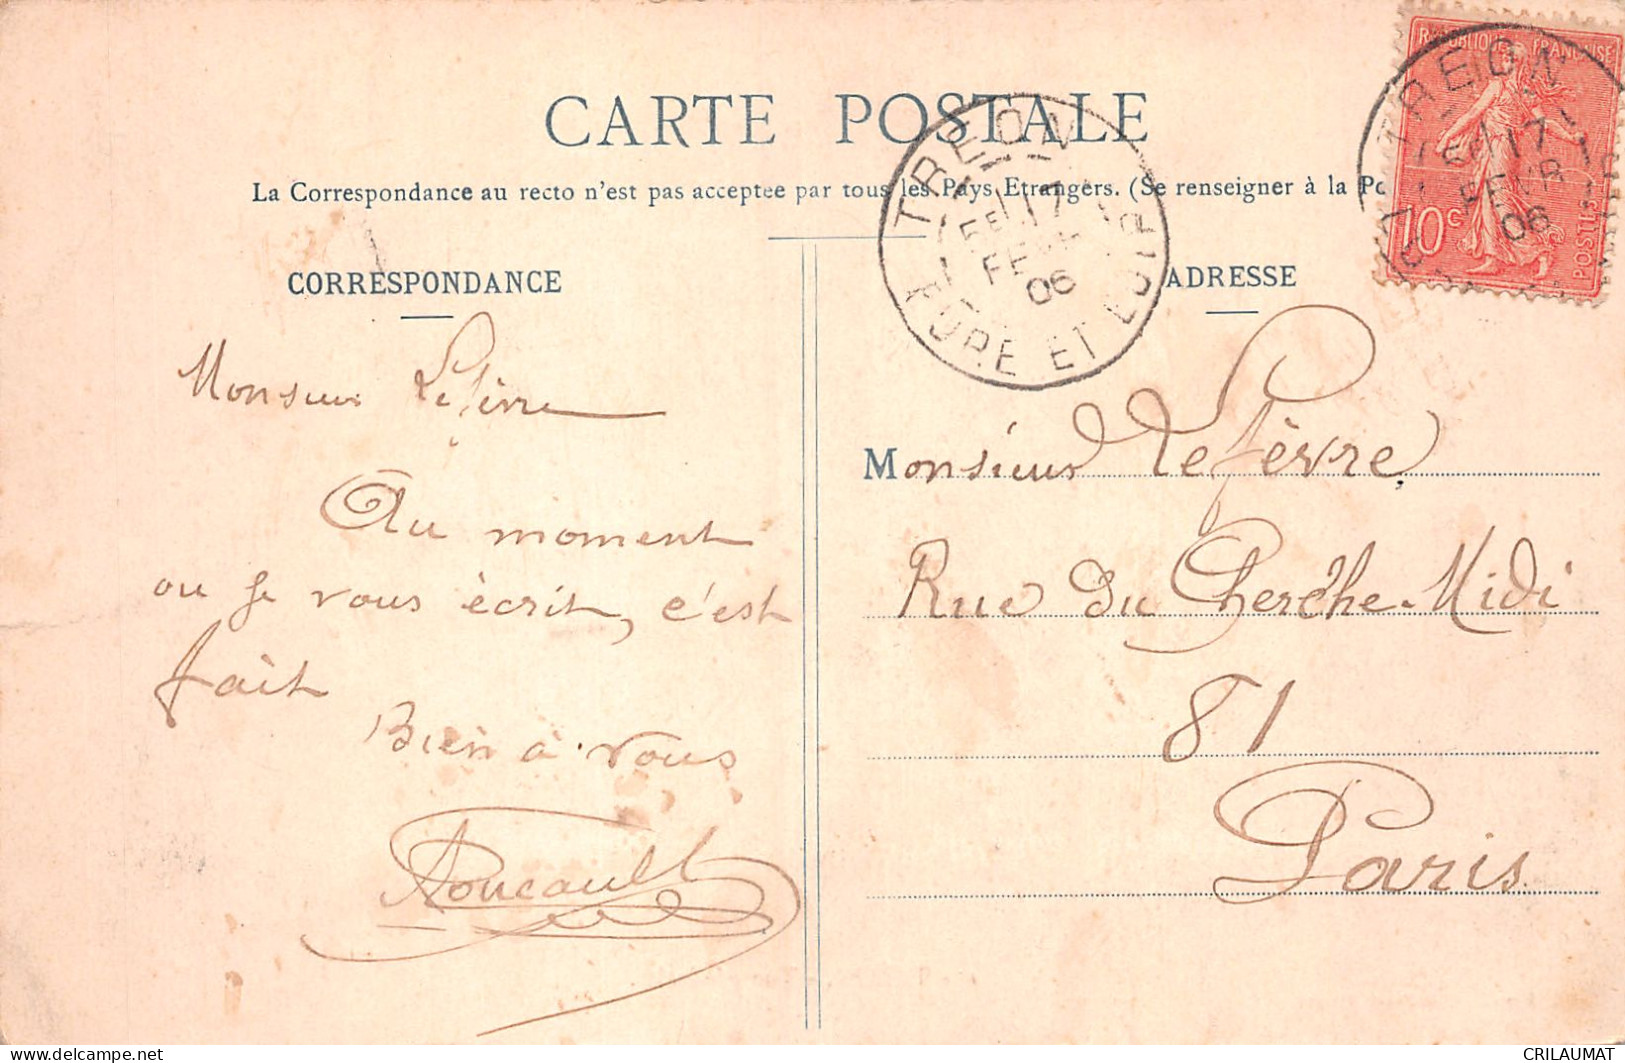 CARTE POSTALE
La Correspondance au recto n'est pas acceptée par tous les Pays Etrangers. (Se renseigner à la Po
CORRESPONDANCE
ADRESSE
REPUBLIQUE FRANÇAISE
10c
POSTES
TREON
17
FEVR
06
TREON
17
FEVR
06
EURE ET LOIR
Monsieur Lefèvre
Au moment
ou je vous ècrit, c'est
fait
Bien à vous
Foucault
Monsieur Lefèvre,
Rue Du Cherche-Midi
81
Paris.
delcampe.net
CRILAUMAT